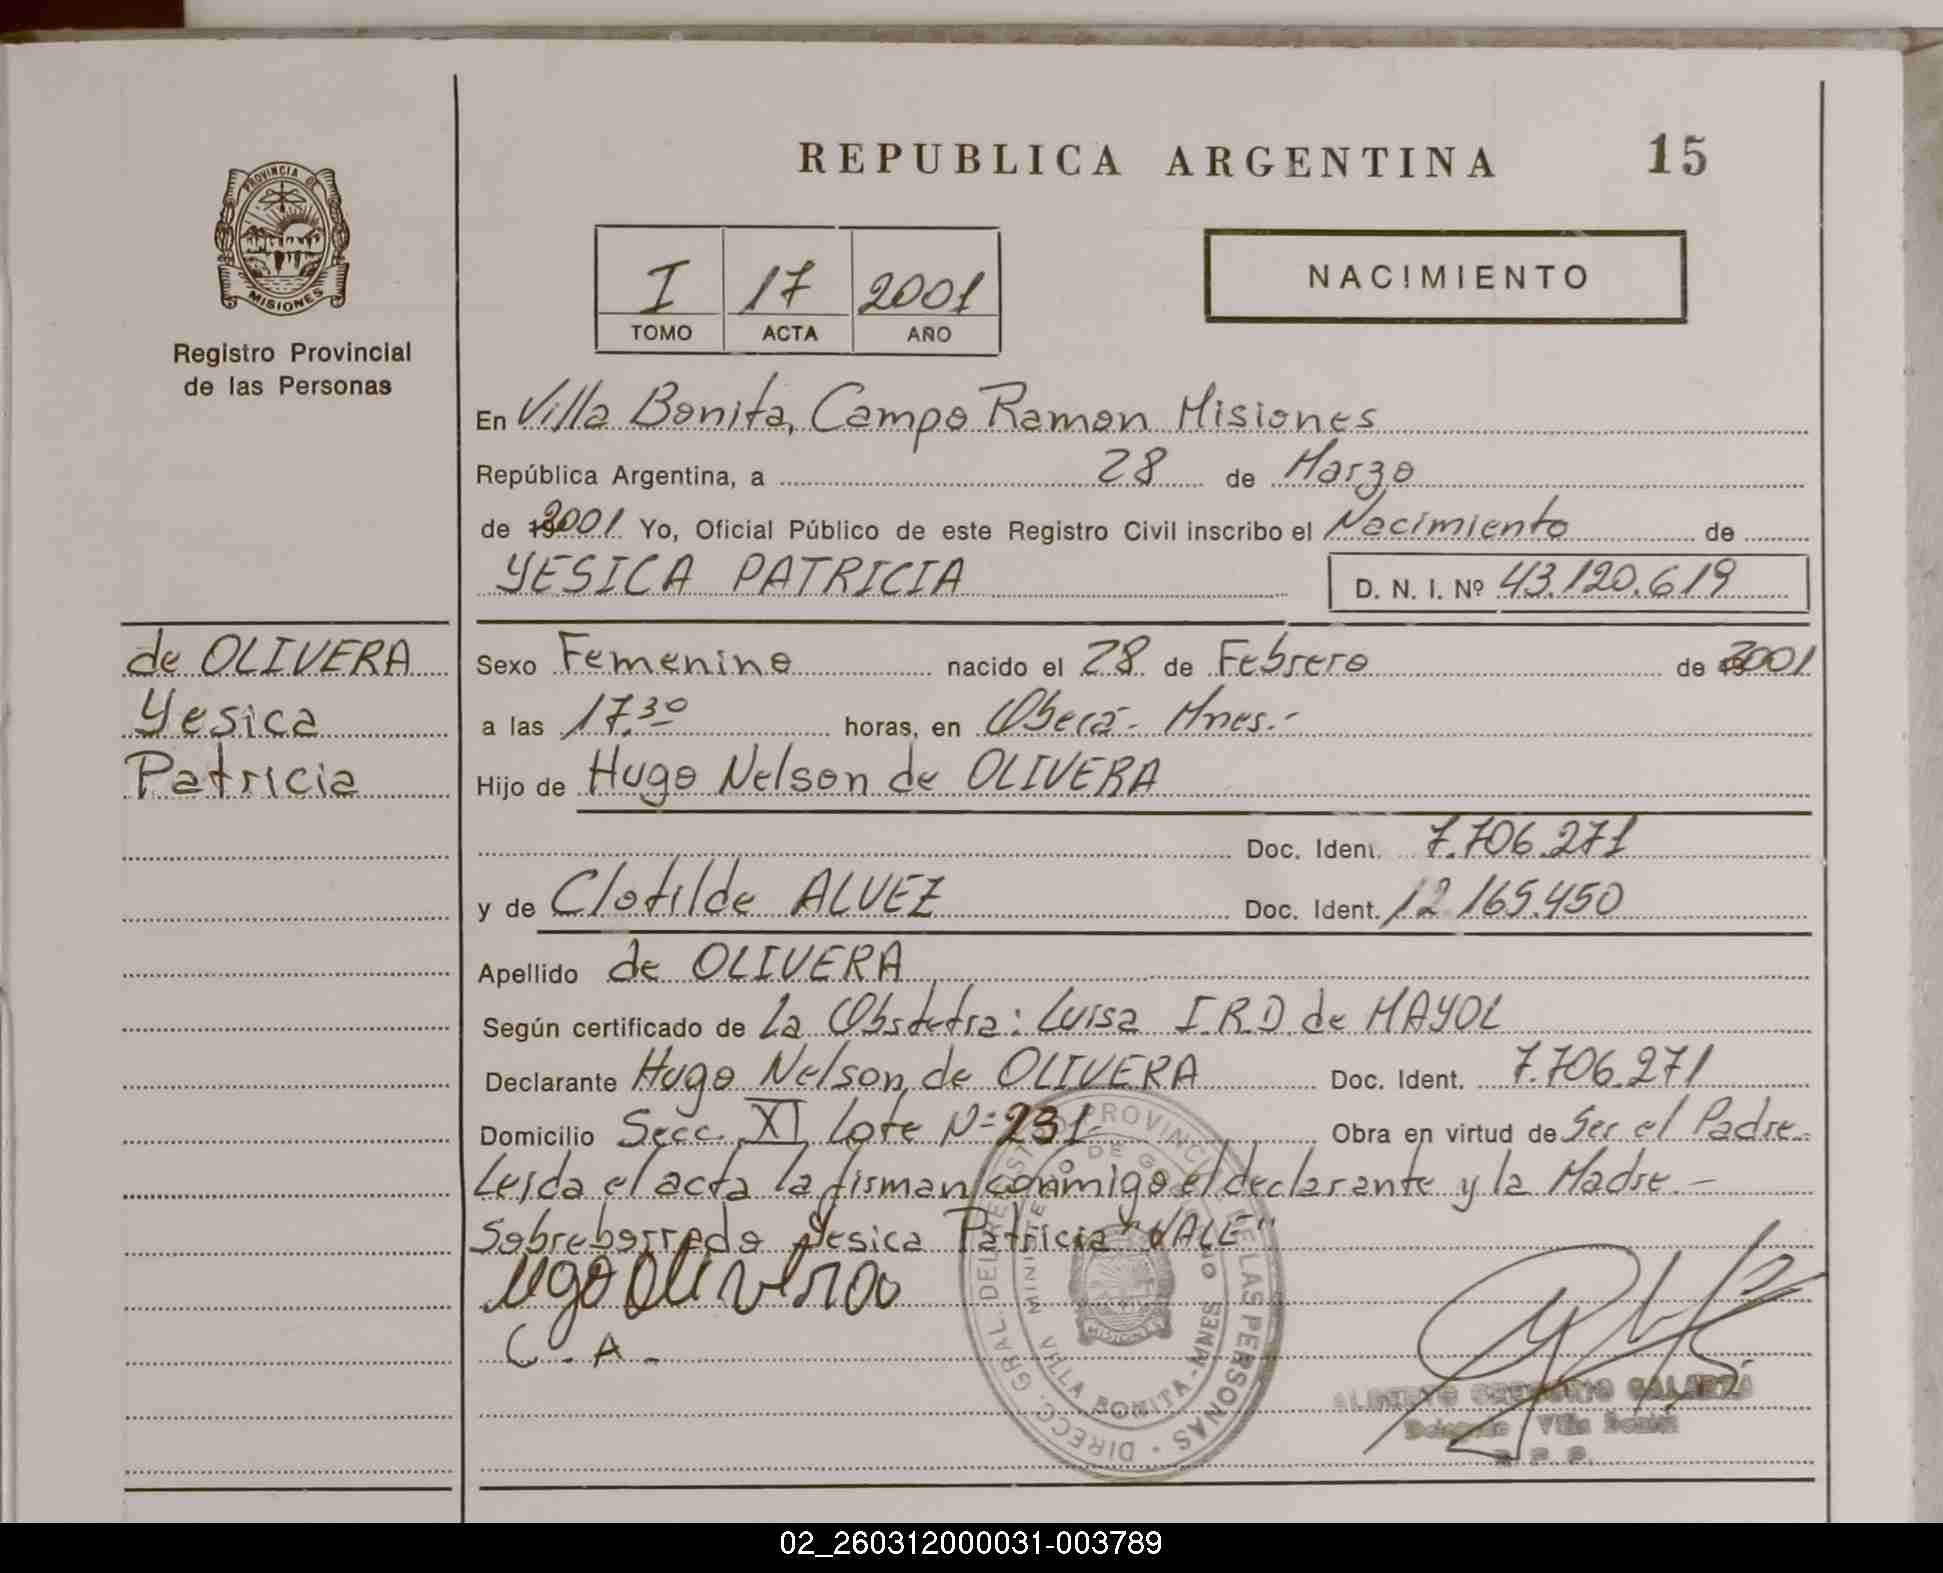 REPUBLICA ARGENTINA 15
PROVINCIA DE
MISIONES
Registro Provincial
de las Personas
I 17 2001
TOMO ACTA AÑO
NACIMIENTO
En Villa Bonita, Campo Ramon Misiones
República Argentina, a 28 de Marzo
de 2001 Yo, Oficial Público de este Registro Civil inscribo el Nacimiento de
YESICA PATRICIA D. N. I. Nº 43.120.619
de OLIVERA
Yesica
Patricia
Sexo Femenino nacido el 28 de Febrero de 2001
a las 17.30 horas, en Oberá - Mnes.-
Hijo de Hugo Nelson de OLIVERA
Doc. Ident. 7.706.271
y de Clotilde ALVEZ Doc. Ident. 12.165.450
Apellido de OLIVERA
Según certificado de La Obstetra: Luisa I.R.D. de MAYOL
Declarante Hugo Nelson de OLIVERA Doc. Ident. 7.706.271
Domicilio Secc. XI Lote Nº 231- Obra en virtud de Ser el Padre-
Leida el acta la firman conmigo el declarante y la Madre.-
Sobreborrado Yesica Patricia "VALE"
ugo Olivera
C. A.
DIRECC. GRAL. DEL REGISTRO PROVINCIAL DE LAS PERSONAS
VILLA BONITA - MNES
MISIONES
ALBERTO GREGORIO GALARZA
Delegado Villa Bonita
R. P. P.
02_260312000031-003789